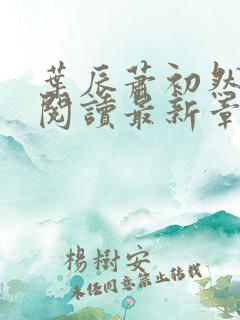 葉辰蕭初然
閱讀最新章
楊樹安
未經同意禁止轉載